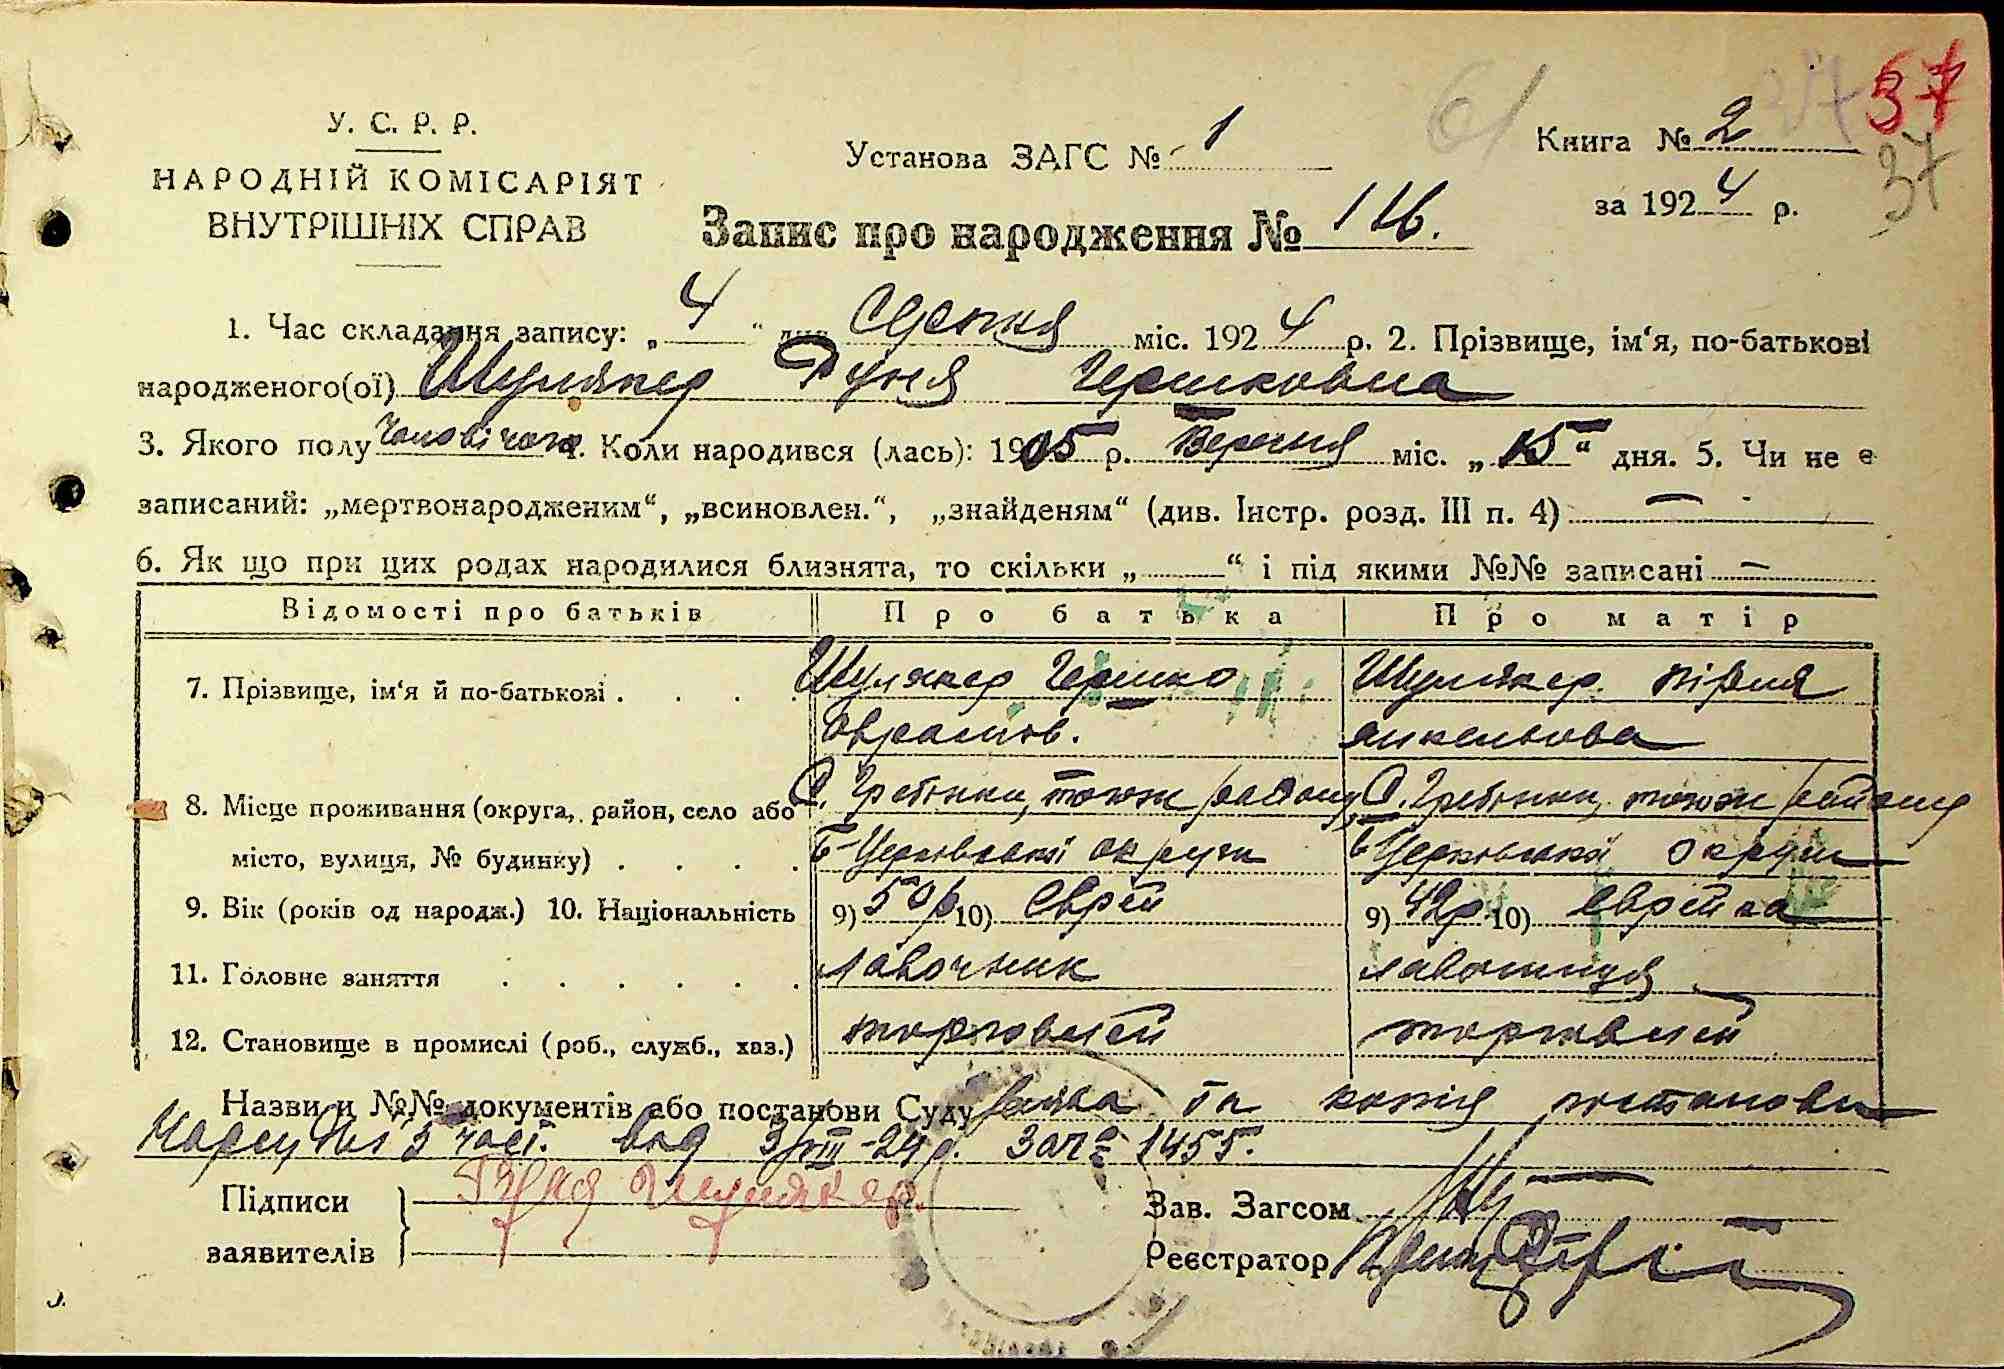 37
У. С. Р. Р.
НАРОДНІЙ КОМІСАРІЯТ
ВНУТРІШНІХ СПРАВ
Установа ЗАГС № 1
61
Книга № 2
37
за 1924 р.
Запис про народження № 116.
1. Час складання запису: „4“ дня Серпня міс. 1924 р. 2. Прізвище, ім‘я, по-батькові
народженого(ої) Шулякер Дуня Гершковна
3. Якого полу чоловічого 4. Коли народився (лась): 1905 р. Березня міс. „15“ дня. 5. Чи не є
записаний: „мертвонародженим“, „всиновлен.“, „знайденям“ (див. Інстр. розд. III п. 4) —
6. Як що при цих родах народилися близнята, то скільки „ “ і під якими №№ записані —
Відомості про батьків Про батька Про матір
7. Прізвище, ім‘я й по-батькові . . . . Шулякер Гершко Шулякер Пірля
Аврамов. Янкельова
8. Місце проживання (округа, район, село або С. Гребінки, тогож району С. Гребінки, тогож району
місто, вулиця, № будинку) . . . . Б-Церковської округи Б Церковської округи
9. Вік (років од народж.) 10. Національність 9) 50 р 10) Єврей 9) 49 р 10) Єврейка
11. Головне заняття . . . . . . лавочник лавочниця
12. Становище в промислі (роб., служб., хаз.) торговлей торговлей
Назви и №№ документів або постанови Суду заява та копія постанови
Нарсуду 5 част. від 3/VIII-24 р. за № 1455.
Підписи
заявителів
Шулякер.
Зав. Загсом
Реєстратор